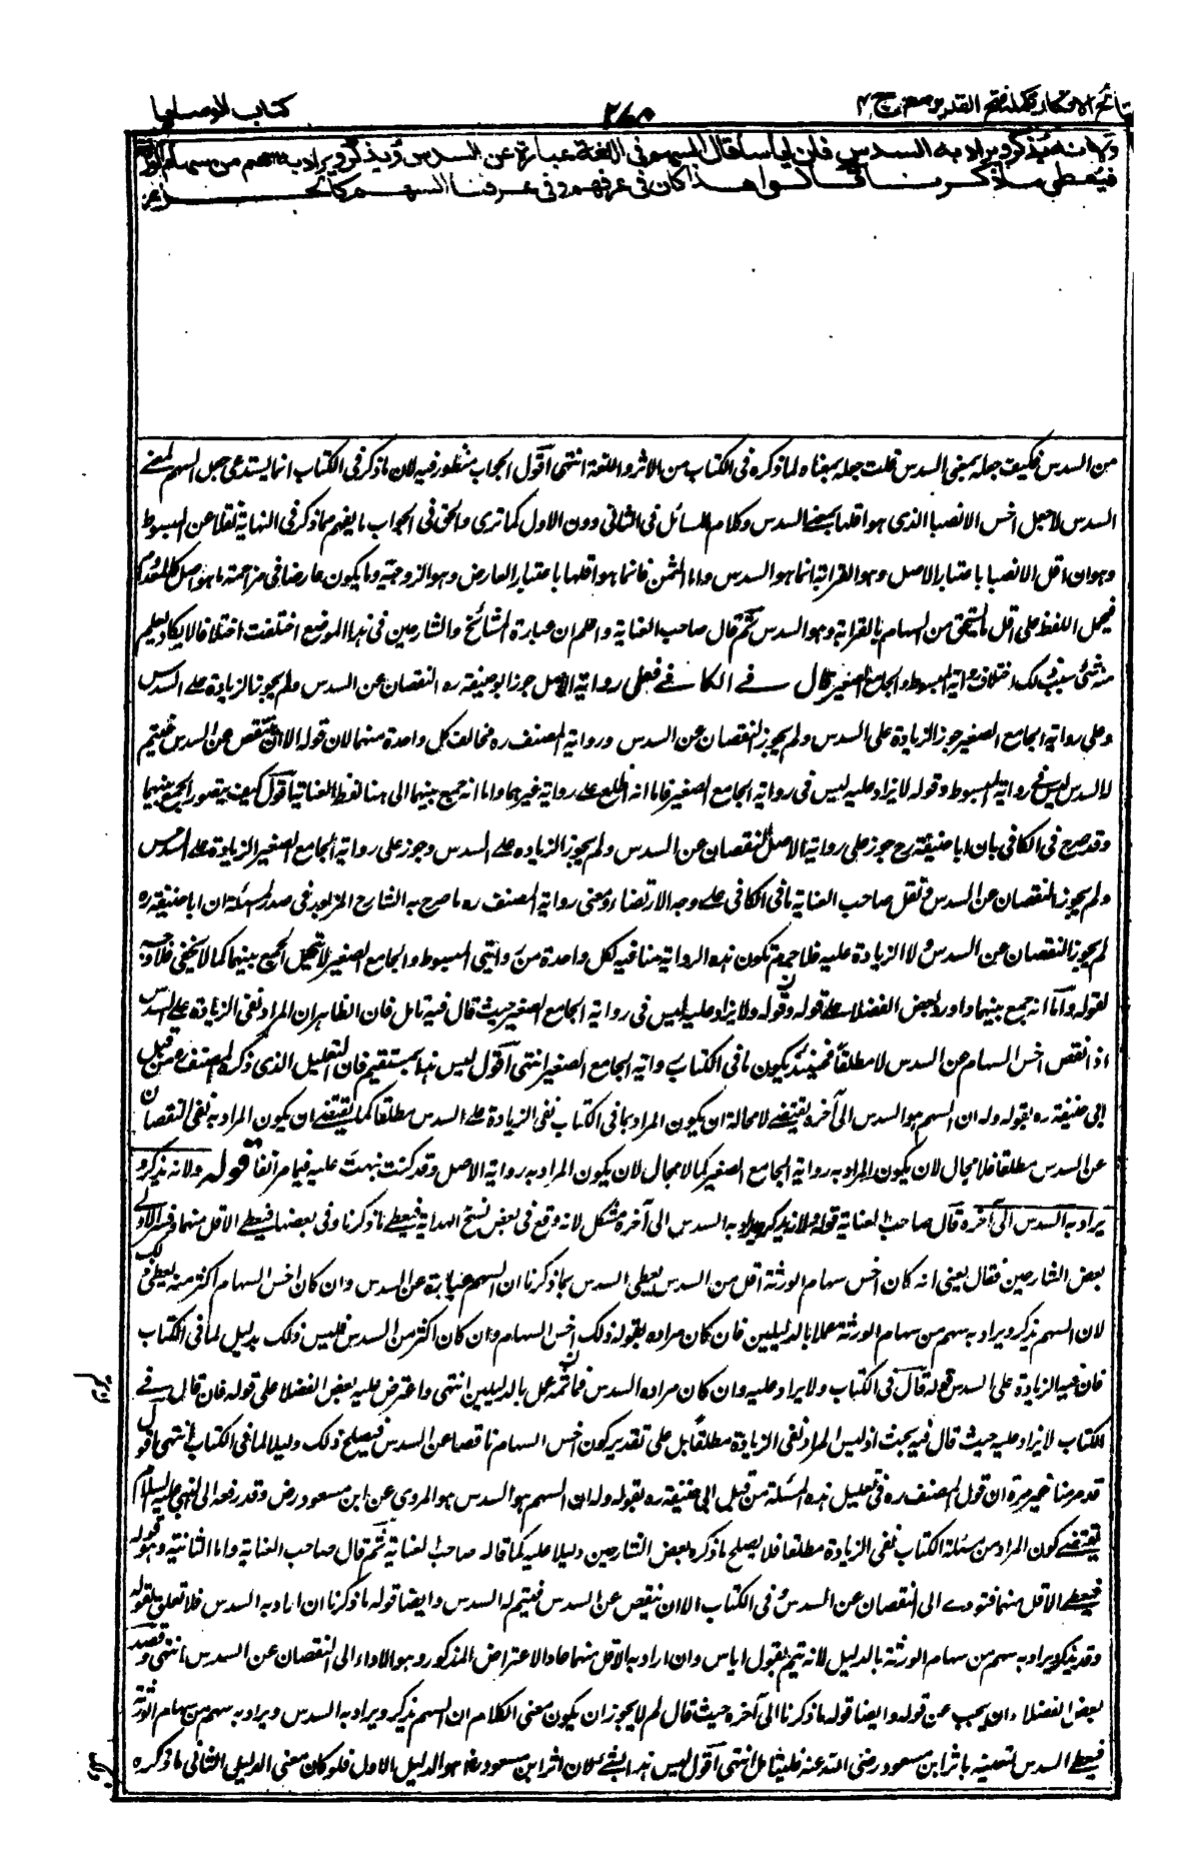 نتائج الافكار تكملة فتح القدير مع ج ٤
كتاب الوصايا
ولانه يذكر ويراد به السدس فان اياسا قال السهم فى اللغة عبارة عن السدس ويذكر ويراد به سهم من سهام الورثة
فيعطى ما ذكرنا قالوا هذا كان فى عرفهم وفى عرفنا السهم كالجزء
من السدس فكيف جعله بمعنى السدس قلت جعله بمعناه لما ذكره فى الكتاب من الاثر واللغة انتهى اقول الجواب منظور فيه لان ما ذكر فى الكتاب انما يستدعى جعل السهم بمعنى
السدس لا جعل اخس الانصباء الذى هو اقلها بمعنى السدس وكلام السائل فى الثانى دون الاول كما ترى والحق فى الجواب ما يفهم مما ذكر فى النهاية نقلا عن المبسوط
وهو ان اقل الانصباء باعتبار الاصل وهو القرابة انما هو السدس واما الثمن فانما هو اقلها باعتبار العارض وهو الزوجية وما يكون عارضا فى مزاحمة ما هو اصل كالمعدوم
فيحمل اللفظ على اقل ما يستحق من السهام بالقرابة وهو السدس ثم قال صاحب العناية واعلم ان عبارة المشائخ والشارحين فى هذا الموضع اختلفت اختلافا لا يكاد يعلم
منه شئ سبب ذلك اختلاف رواية المبسوط والجامع الصغير قال فى الكافى فعلى رواية الاصل جوز ابو حنيفة ره النقصان عن السدس ولم يجوز الزيادة على السدس
وعلى رواية الجامع الصغير جوز الزيادة على السدس ولم يجوز النقصان عن السدس ورواية المصنف ره تخالف كل واحدة منهما لان قوله الا ان ينقص عن السدس فيتم
له السدس ليس فى رواية المبسوط وقوله لا يزاد عليه ليس فى رواية الجامع الصغير فاما انه اطلع على رواية غيرهما واما انه جمع بينهما الى هنا لفظ العناية اقول كيف يتصور الجمع بينهما
وقد صرح فى الكافى بان ابا حنيفة رح جوز على رواية الاصل النقصان عن السدس ولم يجوز الزياده على السدس وجوز على رواية الجامع الصغير الزيادة على السدس
ولم يجوز النقصان عن السدس ونقل صاحب العناية ما فى الكافى على وجه الارتضاء ومعنى رواية المصنف ره ما صرح به الشارح المزبور فى صدر المسئلة ان ابا حنيفة ره
لم يجوز النقصان عن السدس ولا الزيادة عليه فلا جرم تكون هذه الرواية منافية لكل واحدة من روايتى المبسوط والجامع الصغير لا تحتمل الجمع بينهما كما لا يخفى فلا وجه
لقوله واما انه جمع بينهما واورد بعض الفضلاء على قوله وقوله ولا يزاد عليه ليس فى رواية الجامع الصغير حيث قال فيه تامل فان الظاهر ان المراد نفى الزيادة على السدس
اذا نقص اخس السهام عن السدس لا مطلقا فحينئذ يكون ما فى الكتاب رواية الجامع الصغير انتهى اقول ليس هذا بمستقيم فان التعليل الذى ذكره المصنف رح من قبل
ابى حنيفة ره بقوله وله ان السهم هو السدس الى آخره يقتضى لا محالة ان يكون المراد بما فى الكتاب نفى الزيادة على السدس مطلقا كما يقتضى ان يكون المراد به نفى النقصان
عن السدس مطلقا فلا مجال لان يكون المراد به رواية الجامع الصغير كما لا مجال لان يكون المراد به رواية الاصل وقد كنت نبهت عليه فيما مر آنفا قوله ولانه يذكر و
يراد به السدس الى آخره قال صاحب العناية قوله ولانه يذكر ويراد به السدس الى آخره مشكل لانه وقع فى بعض نسخ الهداية فيعطى ما ذكرنا وفى بعضها فيعطى الاقل منهما وفسر الاولى
بعض الشارحين فقال يعنى انه كان اخس سهام الورثة اقل من السدس يعطى السدس بما ذكرنا ان السهم عبارة عن السدس وان كان اخس السهام اكثر منه يعطى ذلك
لان السهم يذكر ويراد به سهم من سهام الورثة عملا بالدليلين فان كان مراده بقوله ذلك اخس السهام وان كان اكثر من السدس فليس ذلك بدليل لما فى الكتاب
فان فيه الزيادة على السدس قوله قال فى الكتاب ولا يزاد عليه وان كان مراده السدس فما ثمه عمل بالدليلين انتهى واعترض عليه بعض الفضلاء على قوله فان قال فى
الكتاب لا يزاد عليه حيث قال فيه بحث اذ ليس المراد نفى الزيادة مطلقا بل على تقدير كون اخس السهام ناقصا عن السدس فيصلح ذلك دليلا لما فى الكتاب انتهى اقول
قد مر منا غير مرة ان قول المصنف ره فى تعليل هذه المسئلة من قبل ابى حنيفة ره بقوله وله ان السهم هو السدس هو المروى عن ابن مسعود رض وقد رفعه الى النبى عليه السلام
يقتضى كون المراد من مسئلة الكتاب نفى الزيادة مطلقا فلا يصلح ما ذكره بعض الشارحين دليلا عليه كما قاله صاحب العناية ثم قال صاحب العناية واما الثانية وهو قوله
فيعطى الاقل منهما فتودى الى النقصان عن السدس وفى الكتاب الا ان ينقص عن السدس فيتم له السدس وايضا قوله ما ذكرنا ان اراد به السدس فلا تعلق لقوله
وقد يذكر ويراد به سهم من سهام الورثة بالدليل لانه يتم بقول اياس وان اراد به الاقل منهما عاد الاعتراض المذكور وهو الاداء الى النقصان عن السدس انتهى وقصد
بعض الفضلاء ان يجيب عن قوله وايضا قوله ما ذكرنا الى آخره حيث قال لم لا يجوز ان يكون معنى الكلام ان السهم يذكر ويراد به السدس ويراد به سهم من سهام الورثة
فيعطى السدس لتعينه باثر ابن مسعود رضى الله عنه فليتامل انتهى اقول ليس هذا بشئ لان اثر ابن مسعود رض هو الدليل الاول فلو كان معنى الدليل الثانى ما ذكره